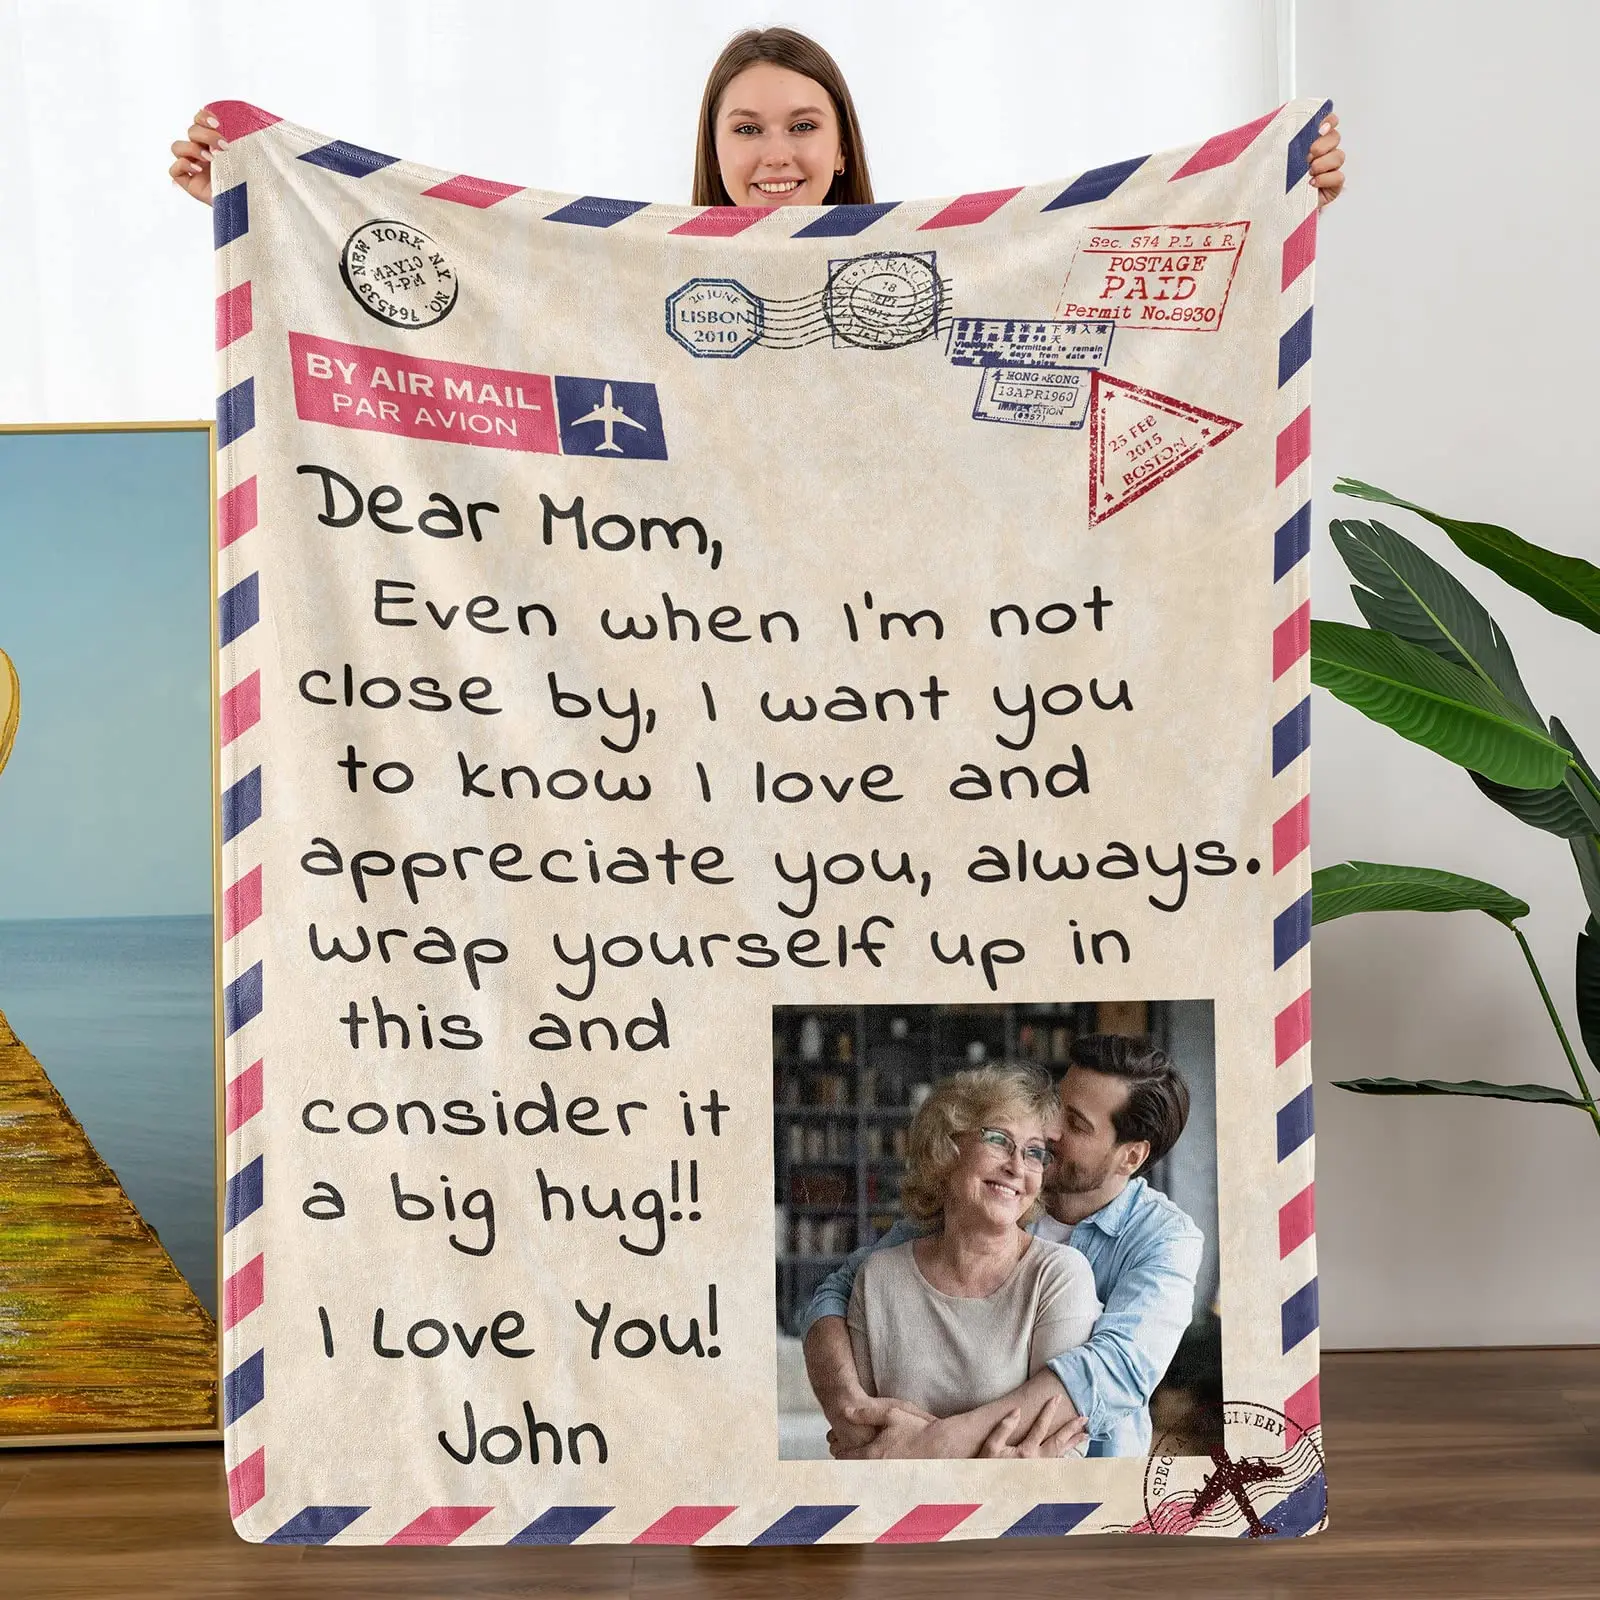 NEW YORK N.Y. NO. 764538
MAY10
7-PM
26 JUNE
LISBON
2010
18
SEPT
Sec. S74 P.L & R.
POSTAGE
PAID
Permit No.8930
VISITOR - Permitted to remain
days from date of
HONG KONG
13APR1960
(0357)
25 FEB
2015
BOSTON
BY AIR MAIL
PAR AVION
Dear Mom,
Even when I'm not
close by, I want you
to know I love and
appreciate you, always.
wrap yourself up in
this and
consider it
a big hug!!
I Love You!
John